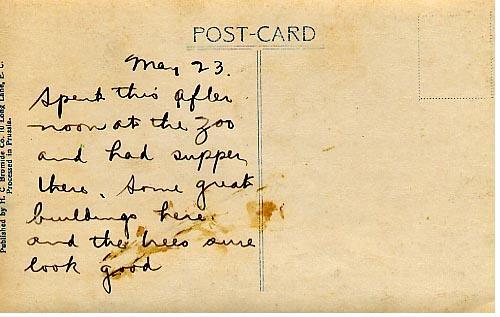 POST-CARD
May 23.
Spent this after
noon at the zoo
and had supper
there. Some great
buildings here.
and the trees sure
look good
Published by H. C. Bromide Co. 10 Long Lane, E. C.
Processed in Prussia.